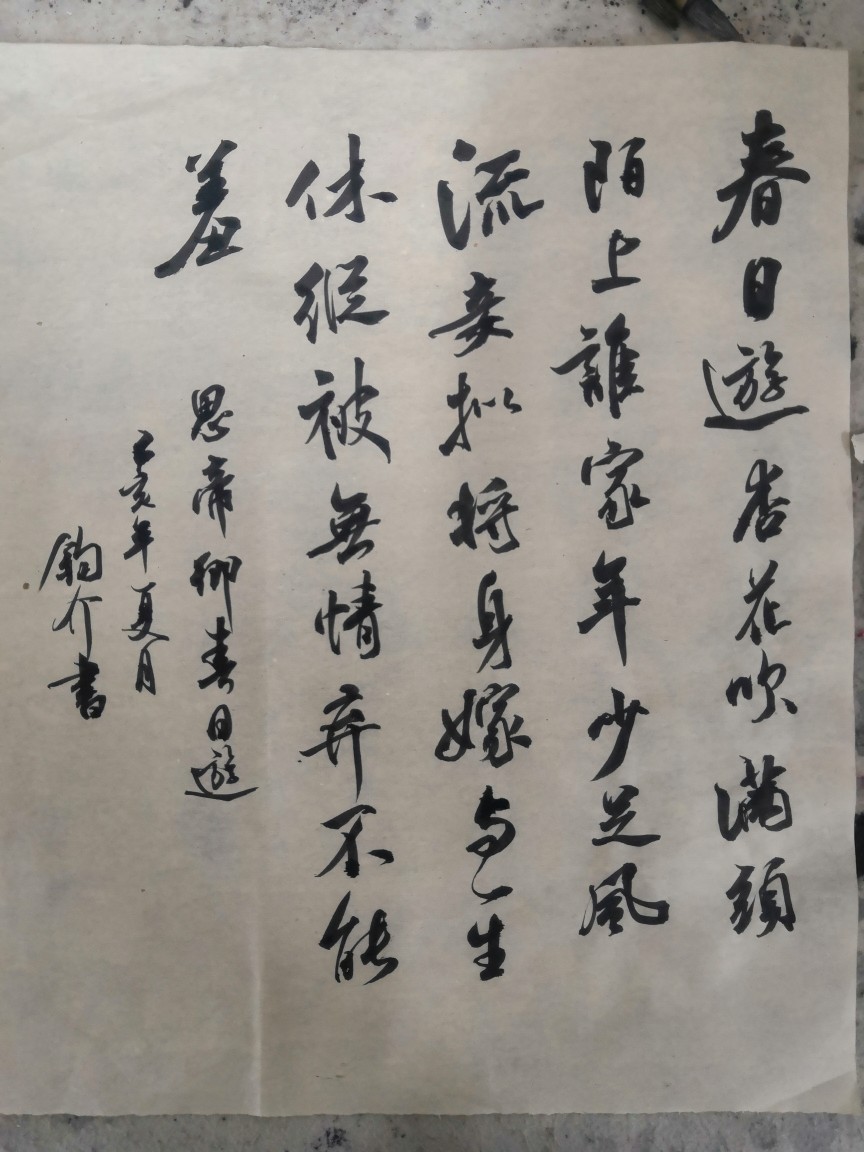 春日遊杏花吹滿頭
陌上誰家年少足風
流妾擬將身嫁与一生
休縱被無情弃不能
羞
思帝鄉春日遊
乙亥年夏月
鈞介書